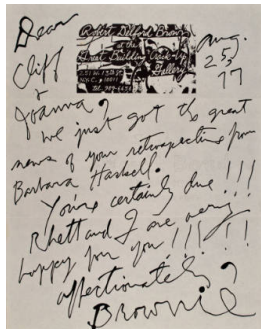 Dear
Cliff
&
Joanna,
Robert Delford Brown
at the
Great Building Crack-Up
Gallery
251 W. 13th St.
N.Y.C. 10011
Aug.
25,
77
We just got the great
news of your retrospective from
Barbara Haskell.
You're certainly due!!!
Rhett and I are very
happy for you!!!!!!
affectionately,
Brownie